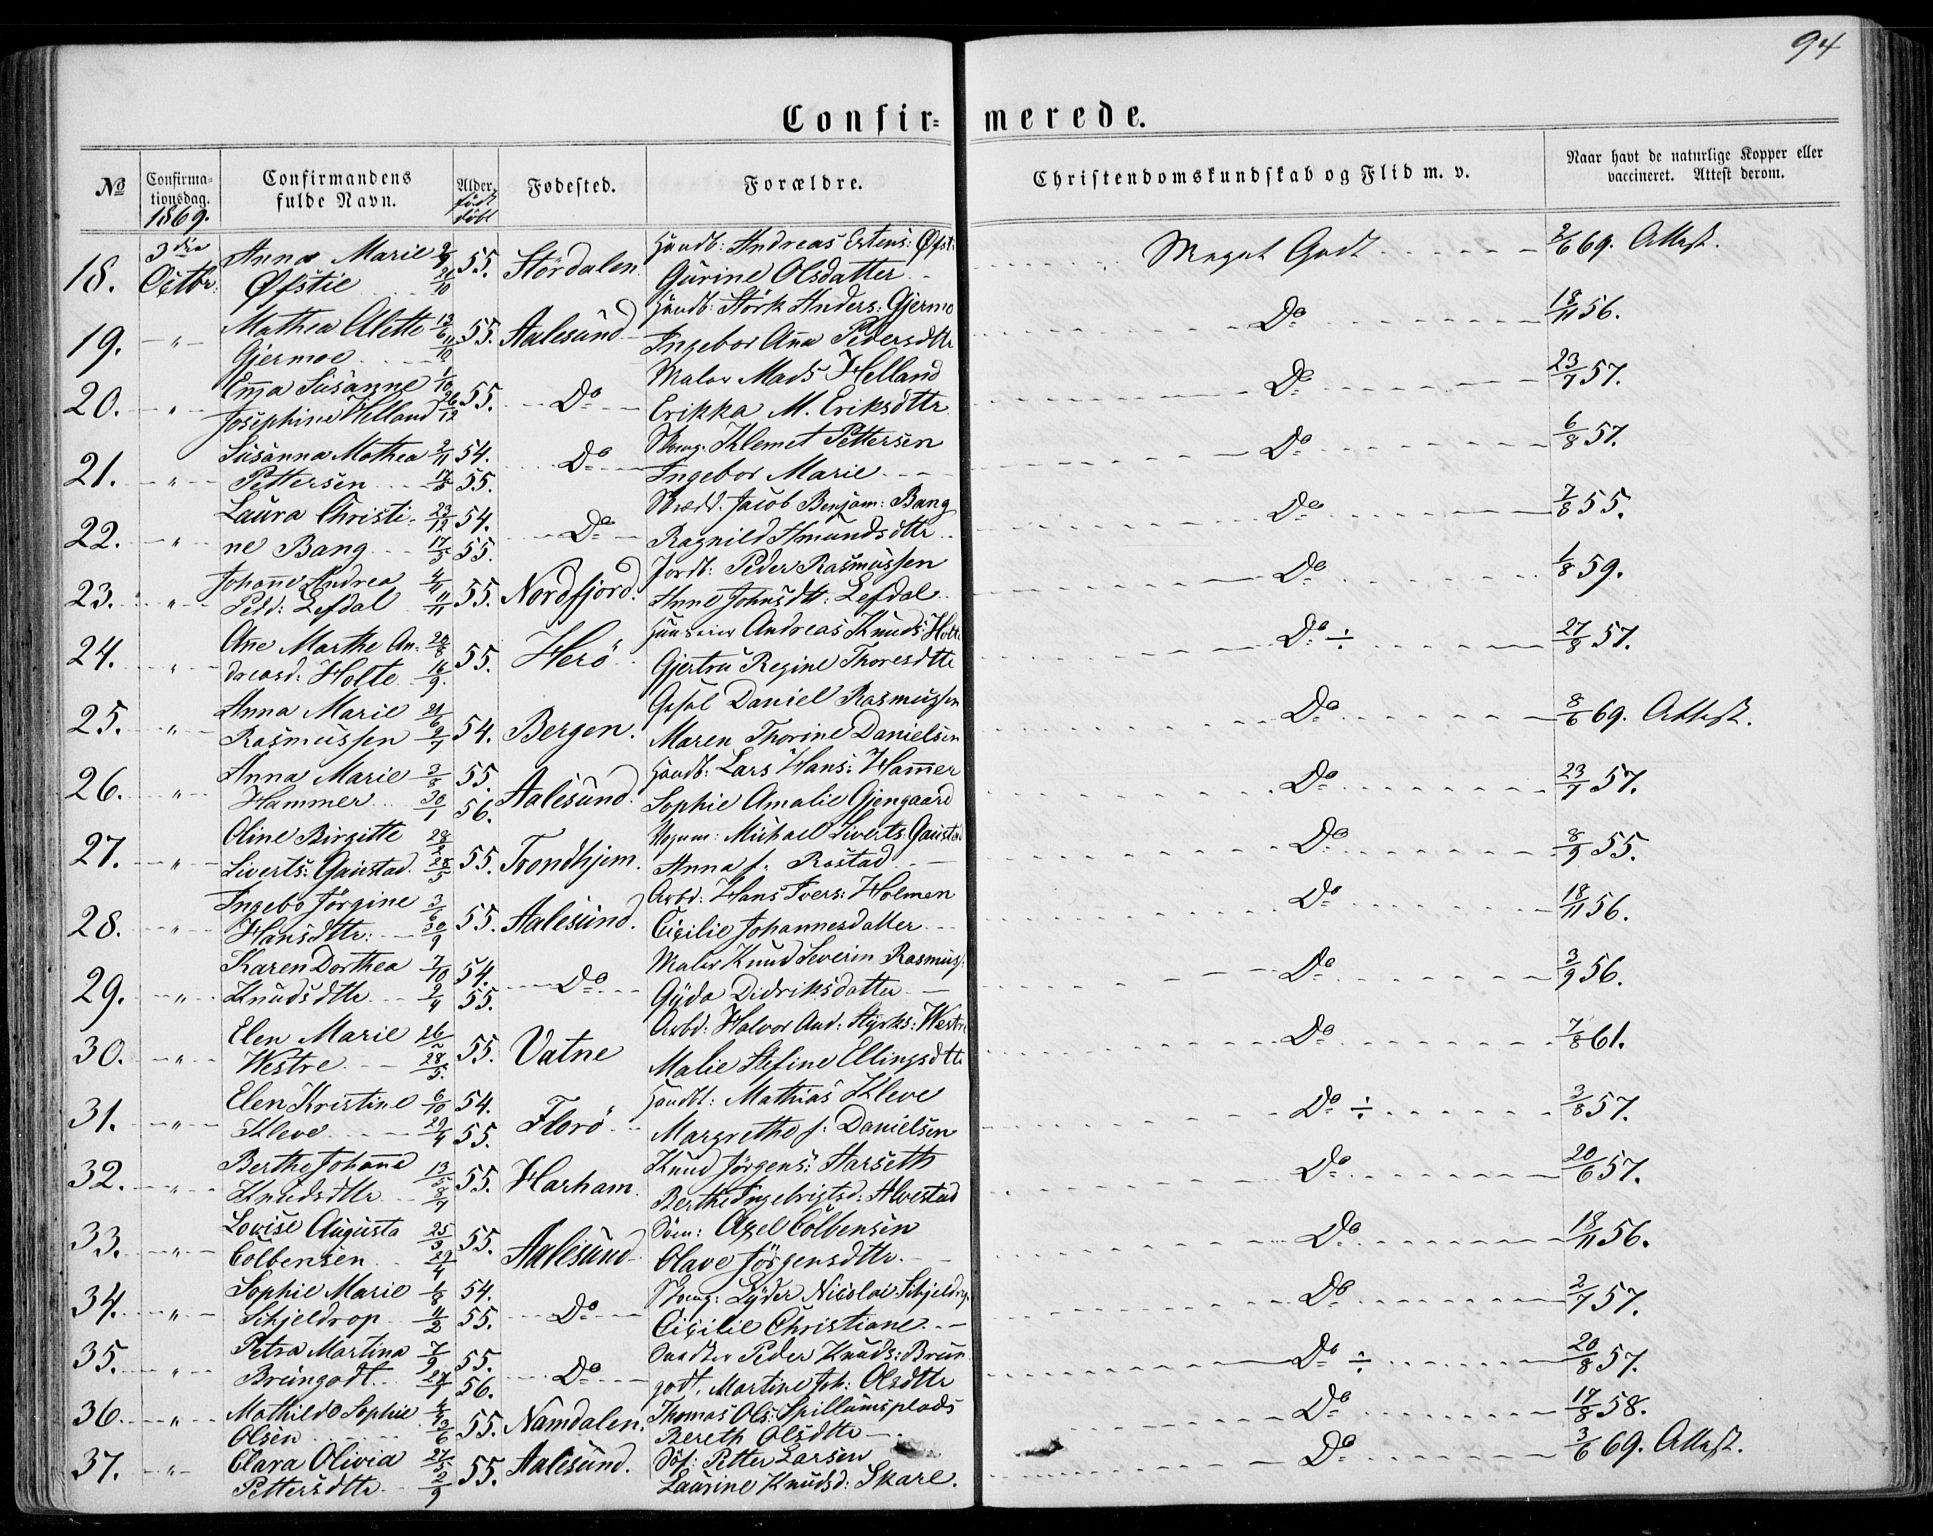 94
Confir= merede.
No Confirma-tionsdag. 1869. Confirmandens fulde Navn. Alder. født døbt Fødested. Forældre. Christendomskundskab og Flid m. v. Naar havt de naturlige Kopper eller vaccineret. Attest derom.
18. 3die Octbr: Anna Marie Øfstie 21/10 55. Størdalen. Handb: Andreas Estens: Øfst: Gurine Olsdatter Meget Godt 2/6 69. Attest.
19. " Mathea Alette Gjermoe 13/6 11/10 55. Aalesund Handb: Størk Anders: Gjermo Ingebor Ana Pedersdttr Do 18/11 56.
20. " Em̄a Susanne Josephine Helland 1/10 26/12 55. Do Maler Mads Helland Erikka M. Eriksdttr Do 23/7 57.
21. " Susanna Mathea Pettersen 2/11 54. 17/5 55. Do Skomg. Klemet Pettersen Ingebor Marie Do 6/8 57.
22. " Laura Christi-ne Bang 23/12 54. 17/5 55. Do Skrædd. Jacob Benjam: Bang Ragnild Amundsdttr Do 7/8 55.
23. " Johan̄e Andrea Petd: Lefdal 4/11 11/11 55. Nordfjord. Jordb: Peder Rasmussen Anne Johnsdtt: Lefdal Do 1/8 59.
24. " Ane Marthe An-dreasd: Holte 28/8 16/9. 55. Herö Huuseier Andreas Knuds: Holte Gjertru Regine Thoresdttr Do ÷ 27/8 57.
25. " Anna Marie Rasmussen 21/6 9/7 54. Bergen. Gesel Daniel Rasmussen Maren Thorine Danielsen Do 8/6 69. Attest.
26. " Anna Marie Hammer 3/8 55. 30/1 56. Aalesund. Handb: Lars Hans: Ham̄er Sophie Amalie Gjengaard Do 23/7 57.
27. " Oline Birgitte Siverts: Gaustad. 28/2 28/5 55. Trondhjem. Michael Siverts: Gaustad Anna f: Rostad Do 8/9 55.
28. " Ingebo Jørgine Hansdttr: 3/6 30/9 55. Aalesund. Arbd: Hans Ivers: Holmen Cicilie Johannesdatter Do 18/11 56.
29. " Karen Dorthea Knudsdttr 7/10 54. 9/4 55. Do Maler Knud Severin Rasmus: Gyda Didriksdatter Do 3/9 56.
30. " Elen Marie Westre 28/5. 55. Vatne Arbd: Halvor And: Styrks: Westre Malie Stefine Ellingsdttr Do 7/8 61.
31. " Elen Kristine Kleve 6/10 54. 29/4 55. Florö Handtl: Mathias Kleve Margrethe f: Danielsen Do ÷ 3/8 57.
32. " Berthe Johan̄a Knudsdttr 13/5 8/7 55. Harham. Knud Jørgens: Aarseth Berthe Ingebrigtsd: Alvestad Do 20/6 57.
33. " Lovise Augusta Colbensen 25/3 29/4 55. Aalesund Axel Colbensen Olave Jørgensdttr Do 18/11 56.
34. " Sophie Marie Schjeldrop 1/8 54. 11/2 55. Do Skomg: Lyder Nicolai Schjeldrop Cicilie Christiane Do 2/7 57.
35. " Petra Martina Brungodt 7/9 55. 27/1 56. Do Peder Knuds: Brun-godt, Martine Joh: Olsdttr Do ÷ 20/8 57.
36. " Mathilde Sophie Olsen 55. Namdalen. Thomas Ols: Spillumsplads Bereth Olsdttr Do 17/8 58.
37. " Clara Olivia Pettersdttr 27/5 2/9 55. Aalesund. Petter Larsen Laurine Knudsd: Skare. Do 3/6 69. Attest.